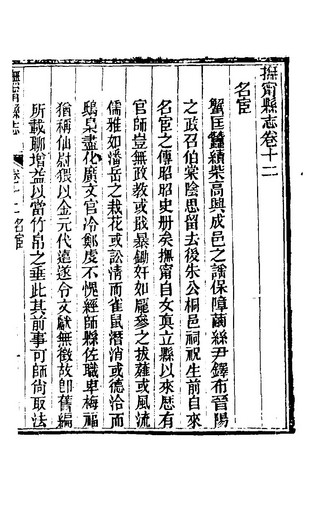 撫甯縣志卷十二
名宦
蟹匡蠶績柴高興成邑之謠保障繭絲尹鐸布晉陽
之政召伯棠陰思留去後朱公桐邑祠祝生前自來
名宦之傳昭昭史册矣撫甯自女真立縣以來歷有
官師豈無政教或戢暴鋤奸如龐參之拔薤或風流
儒雅如潘岳之栽花或訟清而雀鼠潛消或德洽而
鴟梟盡化廣文官冷鄭虔不愧經師縣佐職卑梅福
猶稱仙尉猥以金元代遠遂令文獻無徵故即舊編
所載聊增益以當竹帛之垂此其前事可師尙取法
撫甯縣志
卷十二 名宦